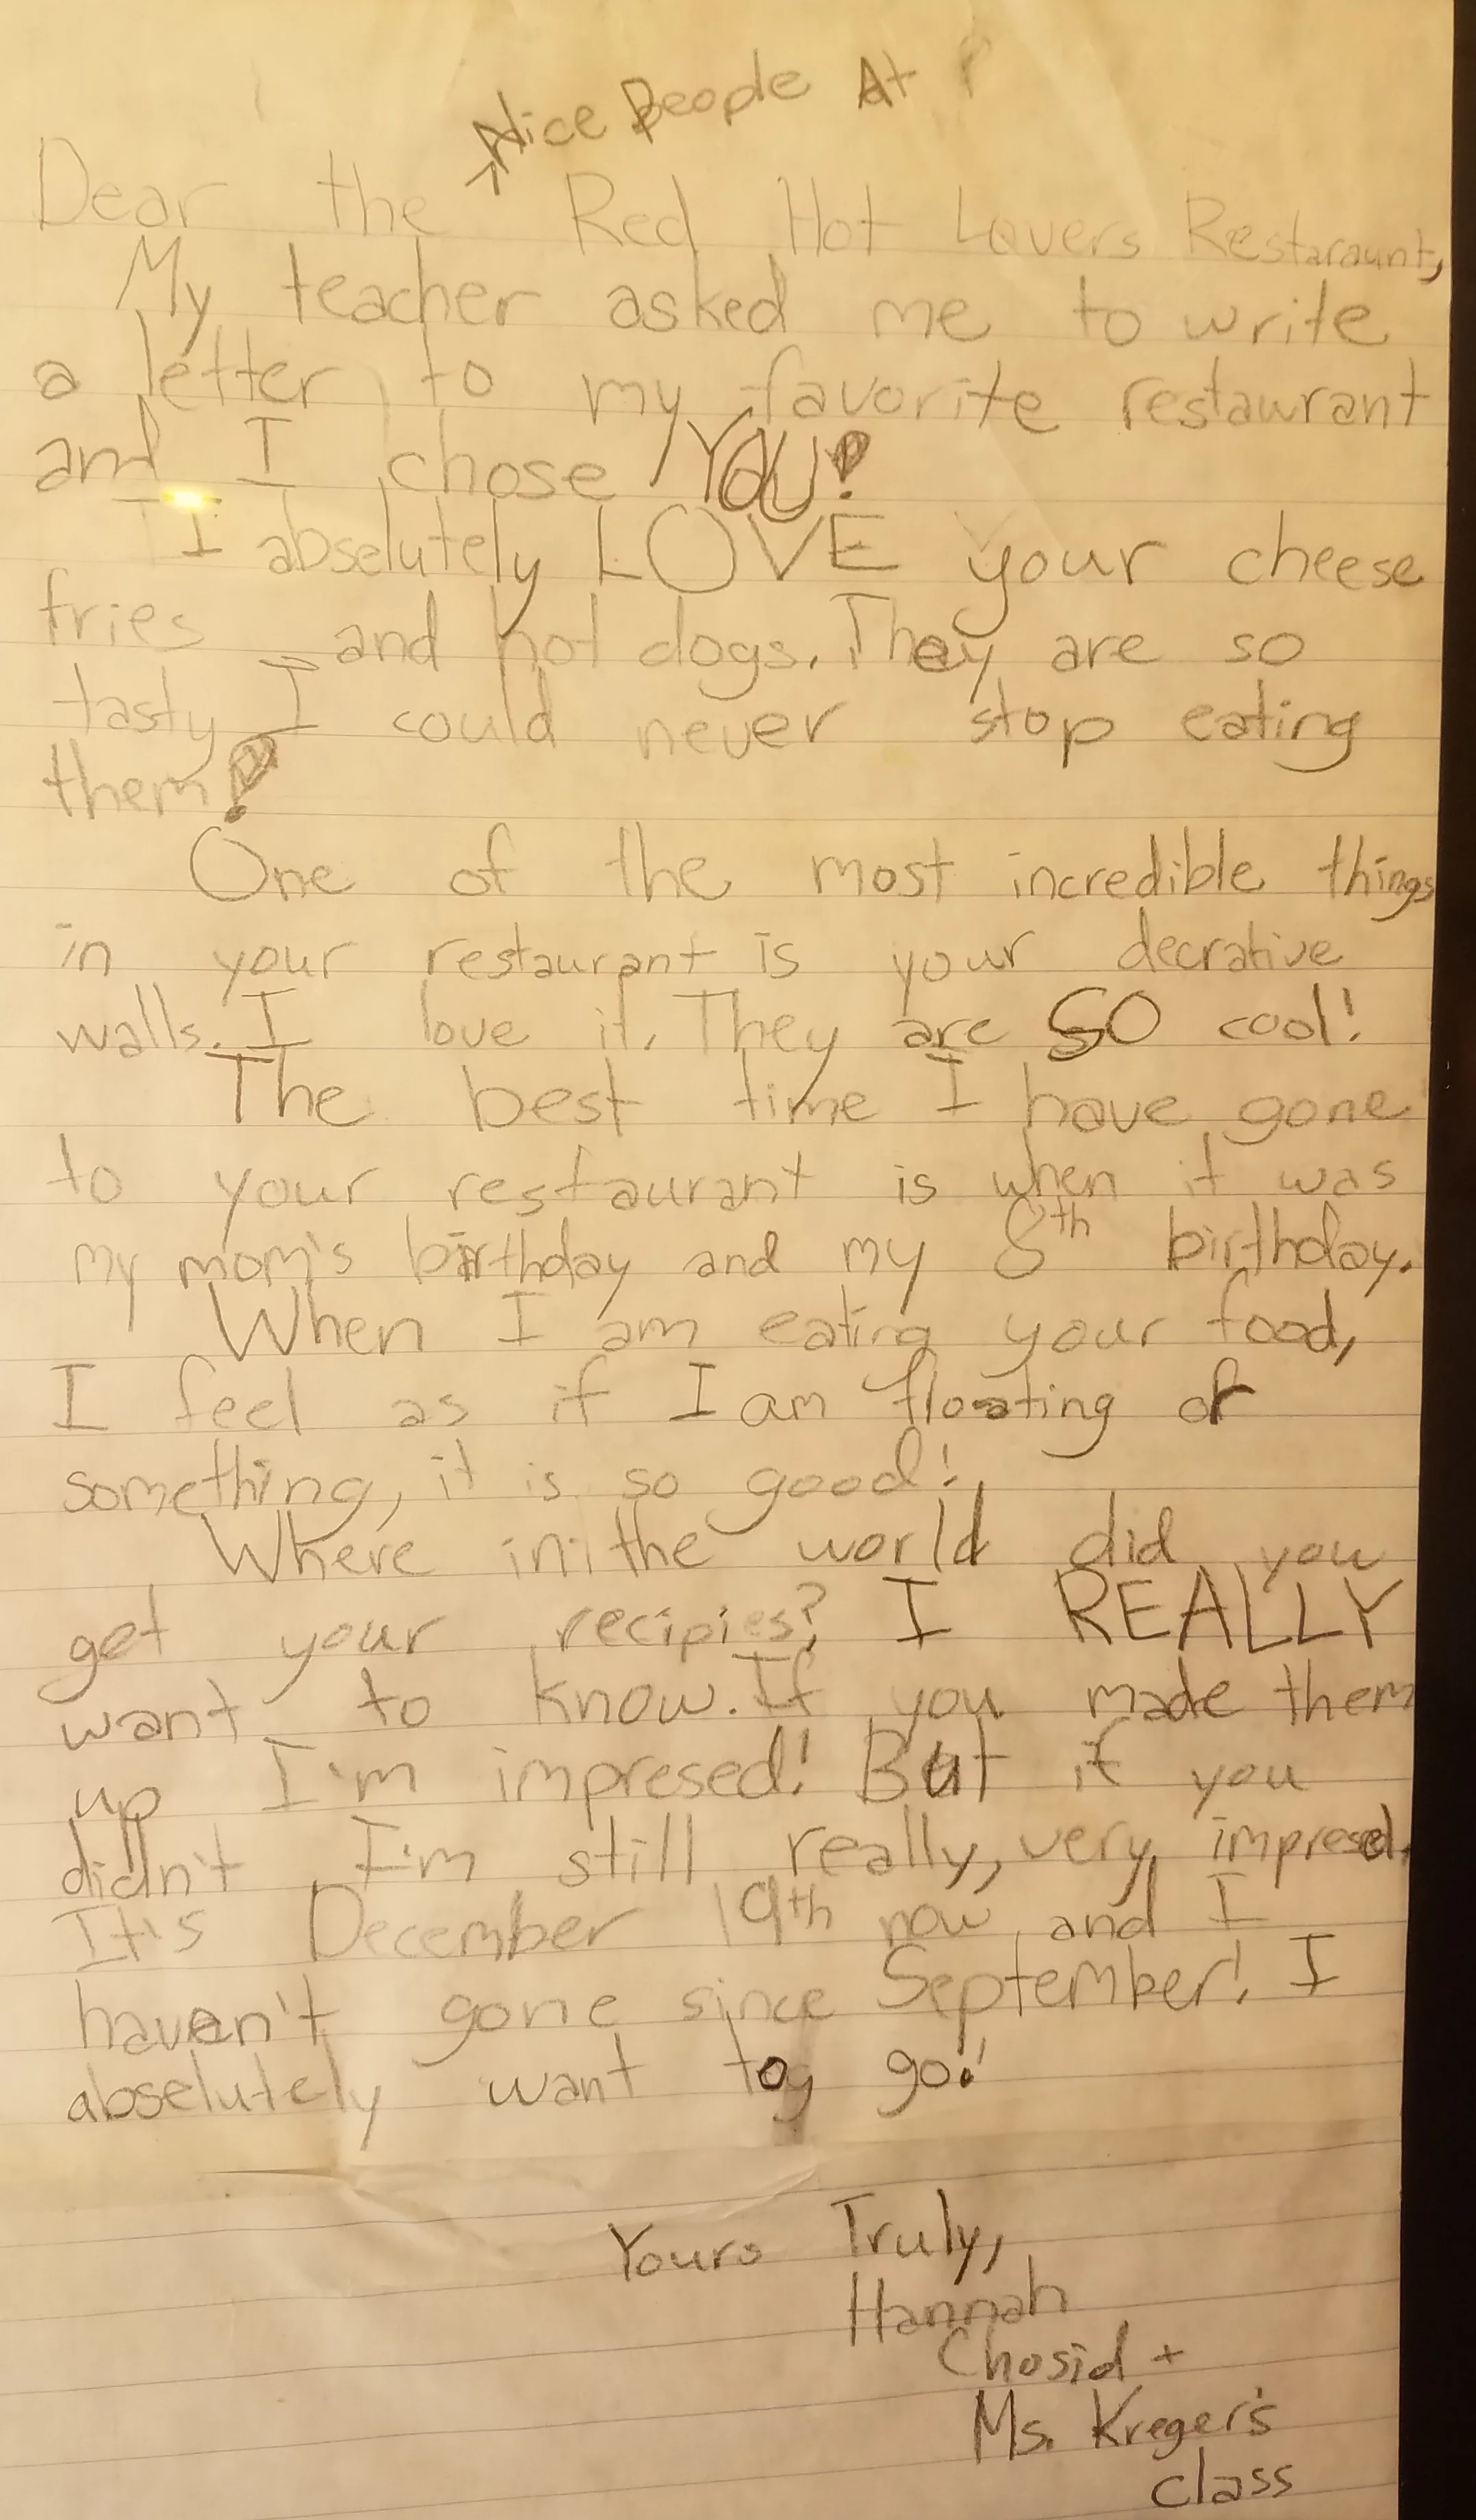 Nice People At
Dear the Red Hot Lovers Restaraunt,
My teacher asked me to write
a letter to my favorite restaurant
and I chose YOU!
I abselutely LOVE your cheese
fries and hot dogs. They are so
tasty I could never stop eating
them!
One of the most incredible things
in your restaurant is your decrative
walls. I love it. They are SO cool!
The best time I have gone
to your restaurant is when it was
my mom's birthday and my 8th birthday.
When I am eating your food,
I feel as if I am floating or
something, it is so good!
Where in the world did you
get your recipies? I REALLY
want to know. If you made them
up I'm impresed! But if you
didn't I'm still really, very impresed.
It's December 19th now and I
haven't gone since September! I
abselutely want to go!!
Yours Truly,
Hannah
Chosid +
Ms. Kreger's
class